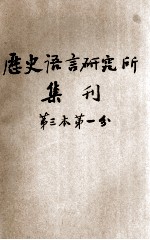 歷史语言研究所
集刊
第三本第一分